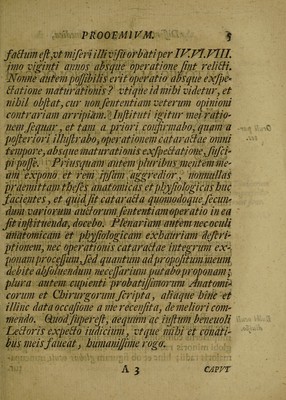 PROOEMIVM. 5
factum est, vt miseri illi visu orbati per IV.VI.VIII.
imo viginti annos absque operatione sint relicti.
Nonne autem possibilis erit operatio absque exspe-
ctatione maturationis? vtique id mihi videtur, et
nihil obstat, cur non sententiam veterum opinioni
contrariam arripiam. Instituti igitur mei ratio-
nem sequar, et tam a priori confirmabo, quam a
posteriori illustrabo, operationem cataractae omni
tempore, absque maturationis exspectatione, susci-
pi posse. Priusquam autem pluribus mentem me-
am expono et rem ipsam aggredior, nonnullas
praemittam theses anatomicas et physiologicas huc
facientes, et quid sit cataracta quomodoque secun-
dum variorum auctorum sententiam operatio in ea
sit instituenda, docebo. Plenariam autem nec oculi
anatomicam et physiologicam exhauriam descri-
ptionem, nec operationis cataractae integrum ex-
ponam processum, sed quantum ad propositum meum
debite absoluendum necessarium putabo proponam;
plura autem cupienti probatissimorum Anatomi-
corum et Chirurgorum scripta, aliaque hinc et
illinc data occasione a me recensita, de meliori com-
mendo. Quod superest, aequum ac iustum beneuoli
Lectoris expecto iudicium, vtque mihi et conati-
bus meis faueat, humanissime rogo.
A 3 CAPVT